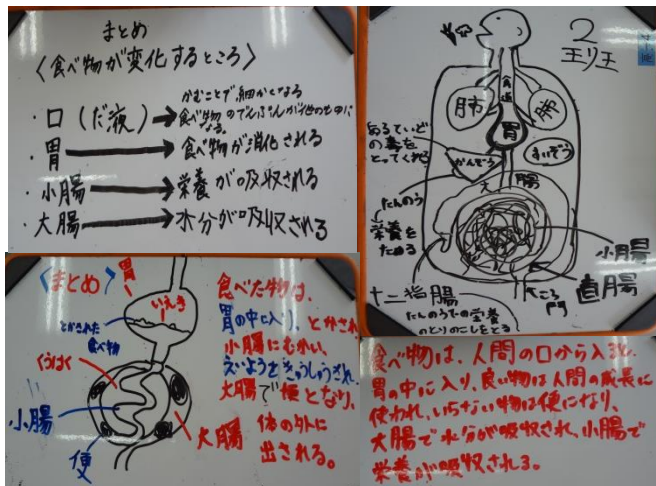 まとめ
〈食べ物が変化するところ〉
かむことで細かくなる
・口(だ液)→食べ物のでんぷんが他のものに
なる。
・胃→食べ物が消化される
・小腸→栄養が吸収される
・大腸→水分が吸収される
2
王リ王
食道
肺
肺
胃
あるていど
の毒を
とってくれる
かんぞう
すいぞう
大
腸
たんのう
栄養を
ためる
小腸
直腸
こう門
十二指腸
たんのうでの栄養
のとりのこしをとる
〈まとめ〉
胃
いえき
とかされた
食べ物
くうはく
小腸
便
大腸
食べた物は、
胃の中に入り、とかされ
小腸にむかい、
えいようをきゅうしゅうされ、
大腸で便となり、
体の外に
出される。
食べ物は、人間の口から入ると、
胃の中に入り、良い物は人間の成長に
使われ、いらない物は便になり、
大腸で水分が吸収され、小腸で
栄養が吸収される。